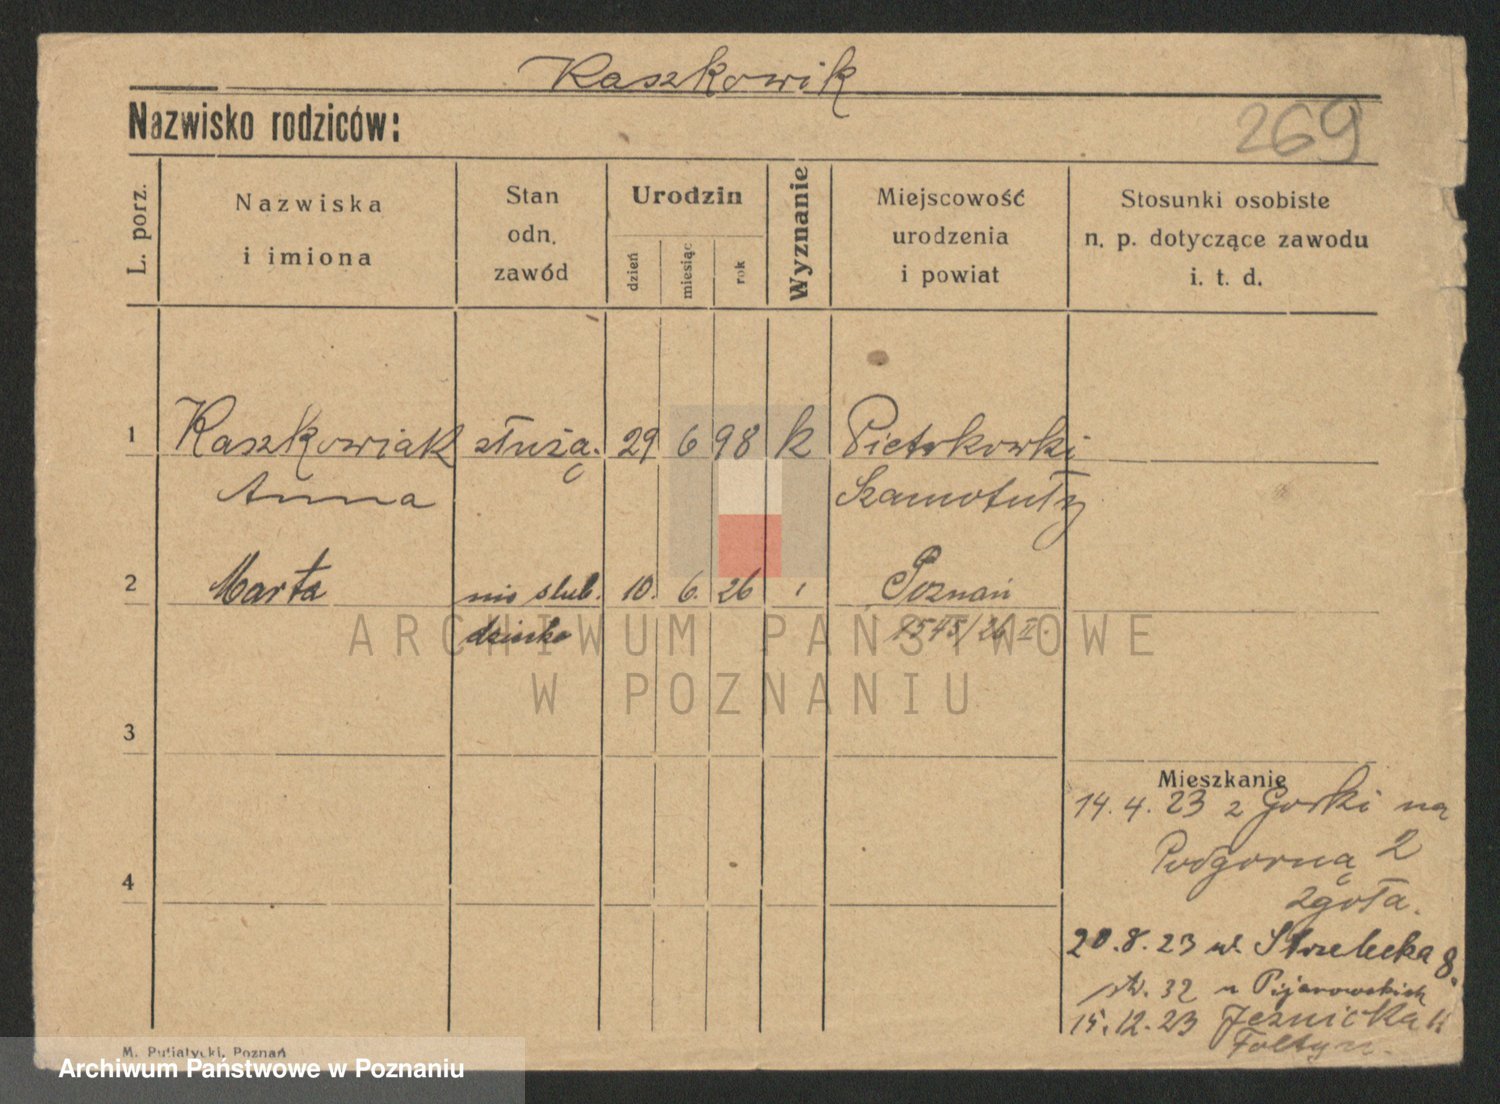 Kaszkowik
Nazwisko rodziców:
269
L. porz.
Nazwiska
i imiona
Stan
odn.
zawód
Urodzin
dzień
miesiąc
rok
Wyznanie
Miejscowość
urodzenia
i powiat
Stosunki osobiste
n. p. dotyczące zawodu
i. t. d.
1 Kaszkowiak służą. 29 6 98 k Pietrkowki
Anna Szamotuły
2 Marta nie ślub. 10. 6. 26 Poznań
dziecko 1545/26 II.
ARCHIWUM PAŃSTWOWE
W POZNANIU
3
Mieszkanie
14.4.23 z Gorki na
Podgorną 2
4
zgoła.
20.8.23 ul. Strzelecka 8.
32 u Pijanowskich
15.12.23 Jeznicka
Foltyn.
M. Putiatycki, Poznań
Archiwum Państwowe w Poznaniu